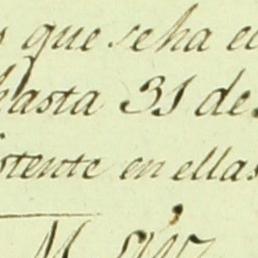 que se ha
hasta 31 de
stente en ellas